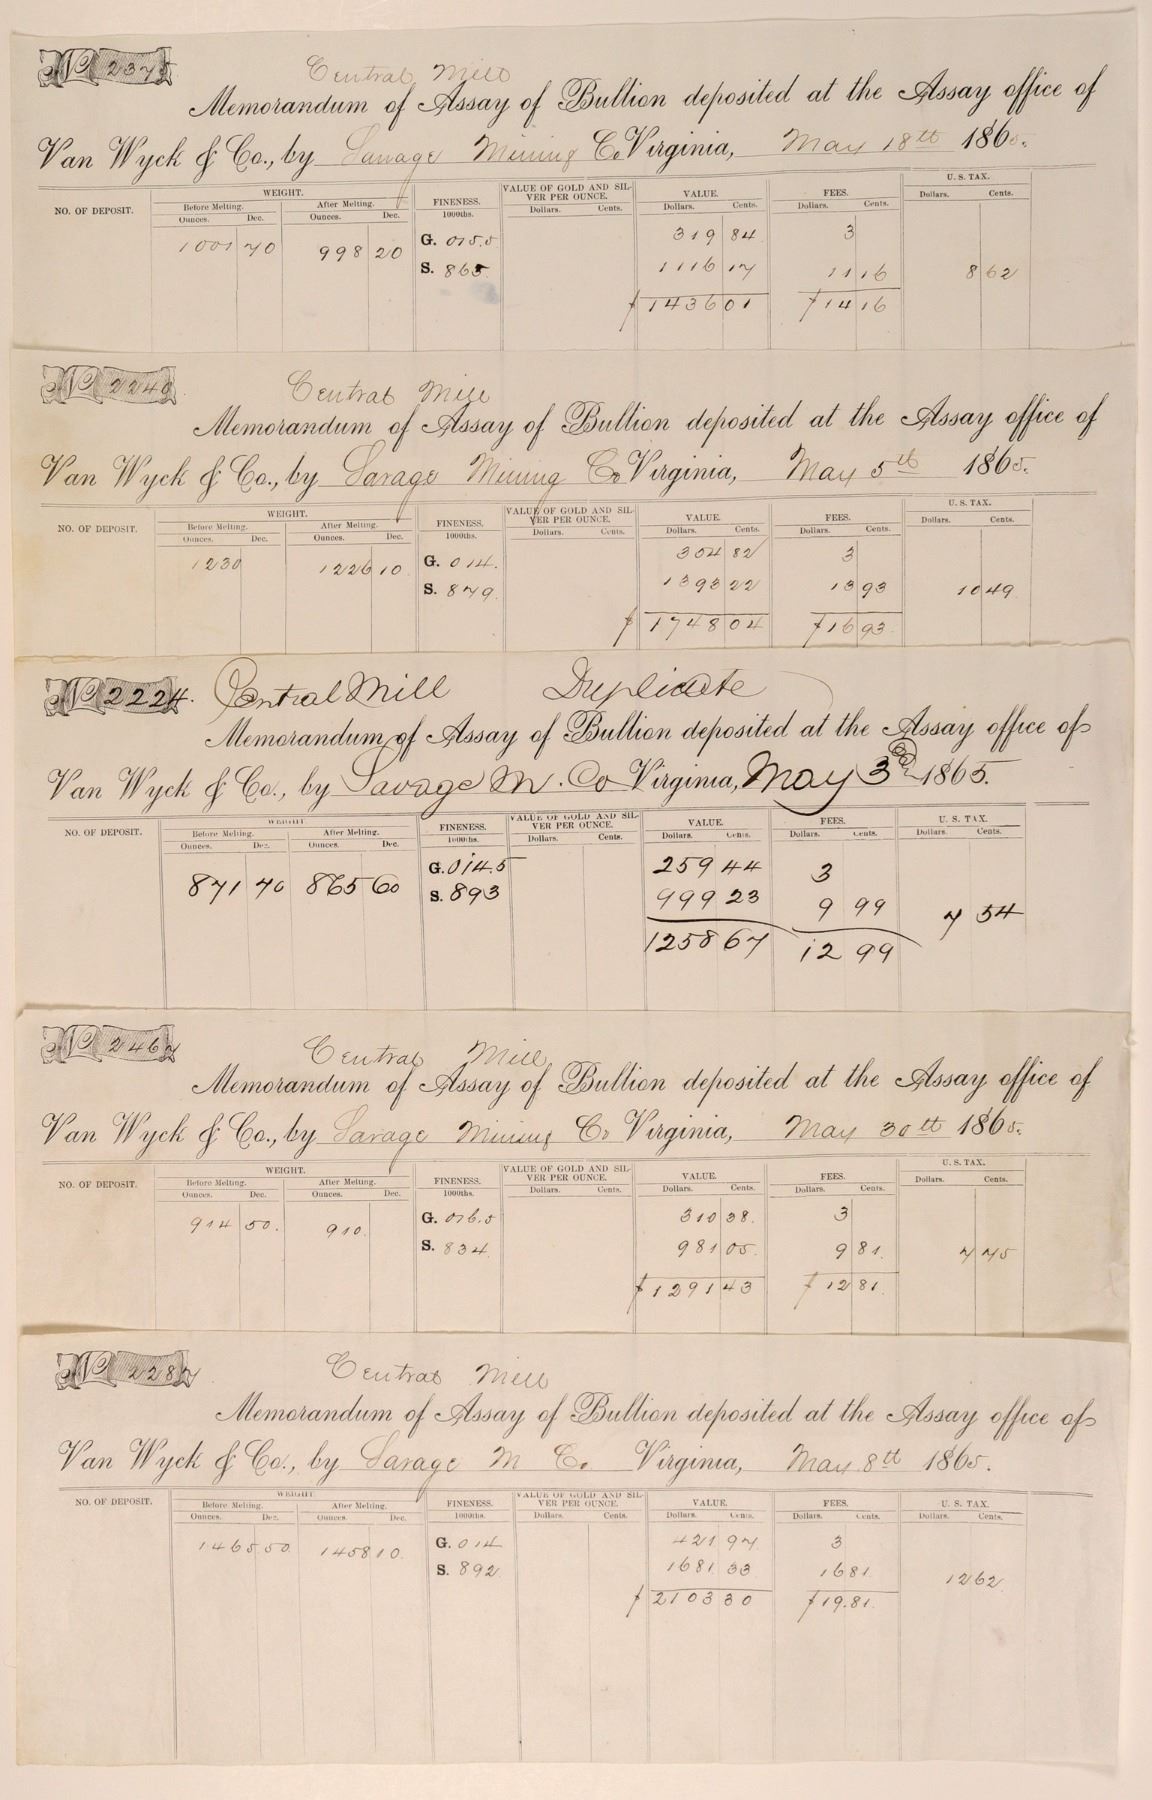 No 2375
Central Mill
Memorandum of Assay of Bullion deposited at the Assay office of
Van Wyck & Co., by Savage Mining Co Virginia, May 18th 1865.
NO. OF DEPOSIT. WEIGHT. FINENESS. VALUE OF GOLD AND SILVER PER OUNCE. VALUE. FEES. U. S. TAX.
Before Melting. After Melting. 1000ths. Dollars. Cents. Dollars. Cents. Dollars. Cents. Dollars. Cents.
Ounces. Dec. Ounces. Dec.
1001 70 998 20 G. 015.5 319 84 3
S. 865 1116 17 11 16 8 62
$1436 01 $14 16
No 2246
Central Mill
Memorandum of Assay of Bullion deposited at the Assay office of
Van Wyck & Co., by Savage Mining Co Virginia, May 5th 1865.
NO. OF DEPOSIT. WEIGHT. FINENESS. VALUE OF GOLD AND SILVER PER OUNCE. VALUE. FEES. U. S. TAX.
Before Melting. After Melting. 1000ths. Dollars. Cents. Dollars. Cents. Dollars. Cents. Dollars. Cents.
Ounces. Dec. Ounces. Dec.
1230 1226 10 G. 014. 354 82 3
S. 879. 1393 22 13 93 10 49
$1748 04 $16 93
No 2224. Central Mill Duplicate
Memorandum of Assay of Bullion deposited at the Assay office of
Van Wyck & Co., by Savage M. Co Virginia, May 3rd 1865.
NO. OF DEPOSIT. WEIGHT. FINENESS. VALUE OF GOLD AND SILVER PER OUNCE. VALUE. FEES. U. S. TAX.
Before Melting. After Melting. 1000ths. Dollars. Cents. Dollars. Cents. Dollars. Cents. Dollars. Cents.
Ounces. Dec. Ounces. Dec.
871 70 865 60 G. 014.5 259 44 3
S. 893 999 23 9 99 7 54
1258 67 12 99
No 2467
Central Mill
Memorandum of Assay of Bullion deposited at the Assay office of
Van Wyck & Co., by Savage Mining Co Virginia, May 30th 1865.
NO. OF DEPOSIT. WEIGHT. FINENESS. VALUE OF GOLD AND SILVER PER OUNCE. VALUE. FEES. U. S. TAX.
Before Melting. After Melting. 1000ths. Dollars. Cents. Dollars. Cents. Dollars. Cents. Dollars. Cents.
Ounces. Dec. Ounces. Dec.
914 50. 910. G. 016.5 310 38. 3
S. 834 981 05. 9 81. 7 75
$1291 43 $12 81.
No 2287
Central Mill
Memorandum of Assay of Bullion deposited at the Assay office of
Van Wyck & Co., by Savage M Co. Virginia, May 8th 1865.
NO. OF DEPOSIT. WEIGHT. FINENESS. VALUE OF GOLD AND SILVER PER OUNCE. VALUE. FEES. U. S. TAX.
Before Melting. After Melting. 1000ths. Dollars. Cents. Dollars. Cents. Dollars. Cents. Dollars. Cents.
Ounces. Dec. Ounces. Dec.
1465 50 1458 10. G. 014 421 97. 3
S. 892 1681 33 16 81. 12 62
$2103 30 $19.81.